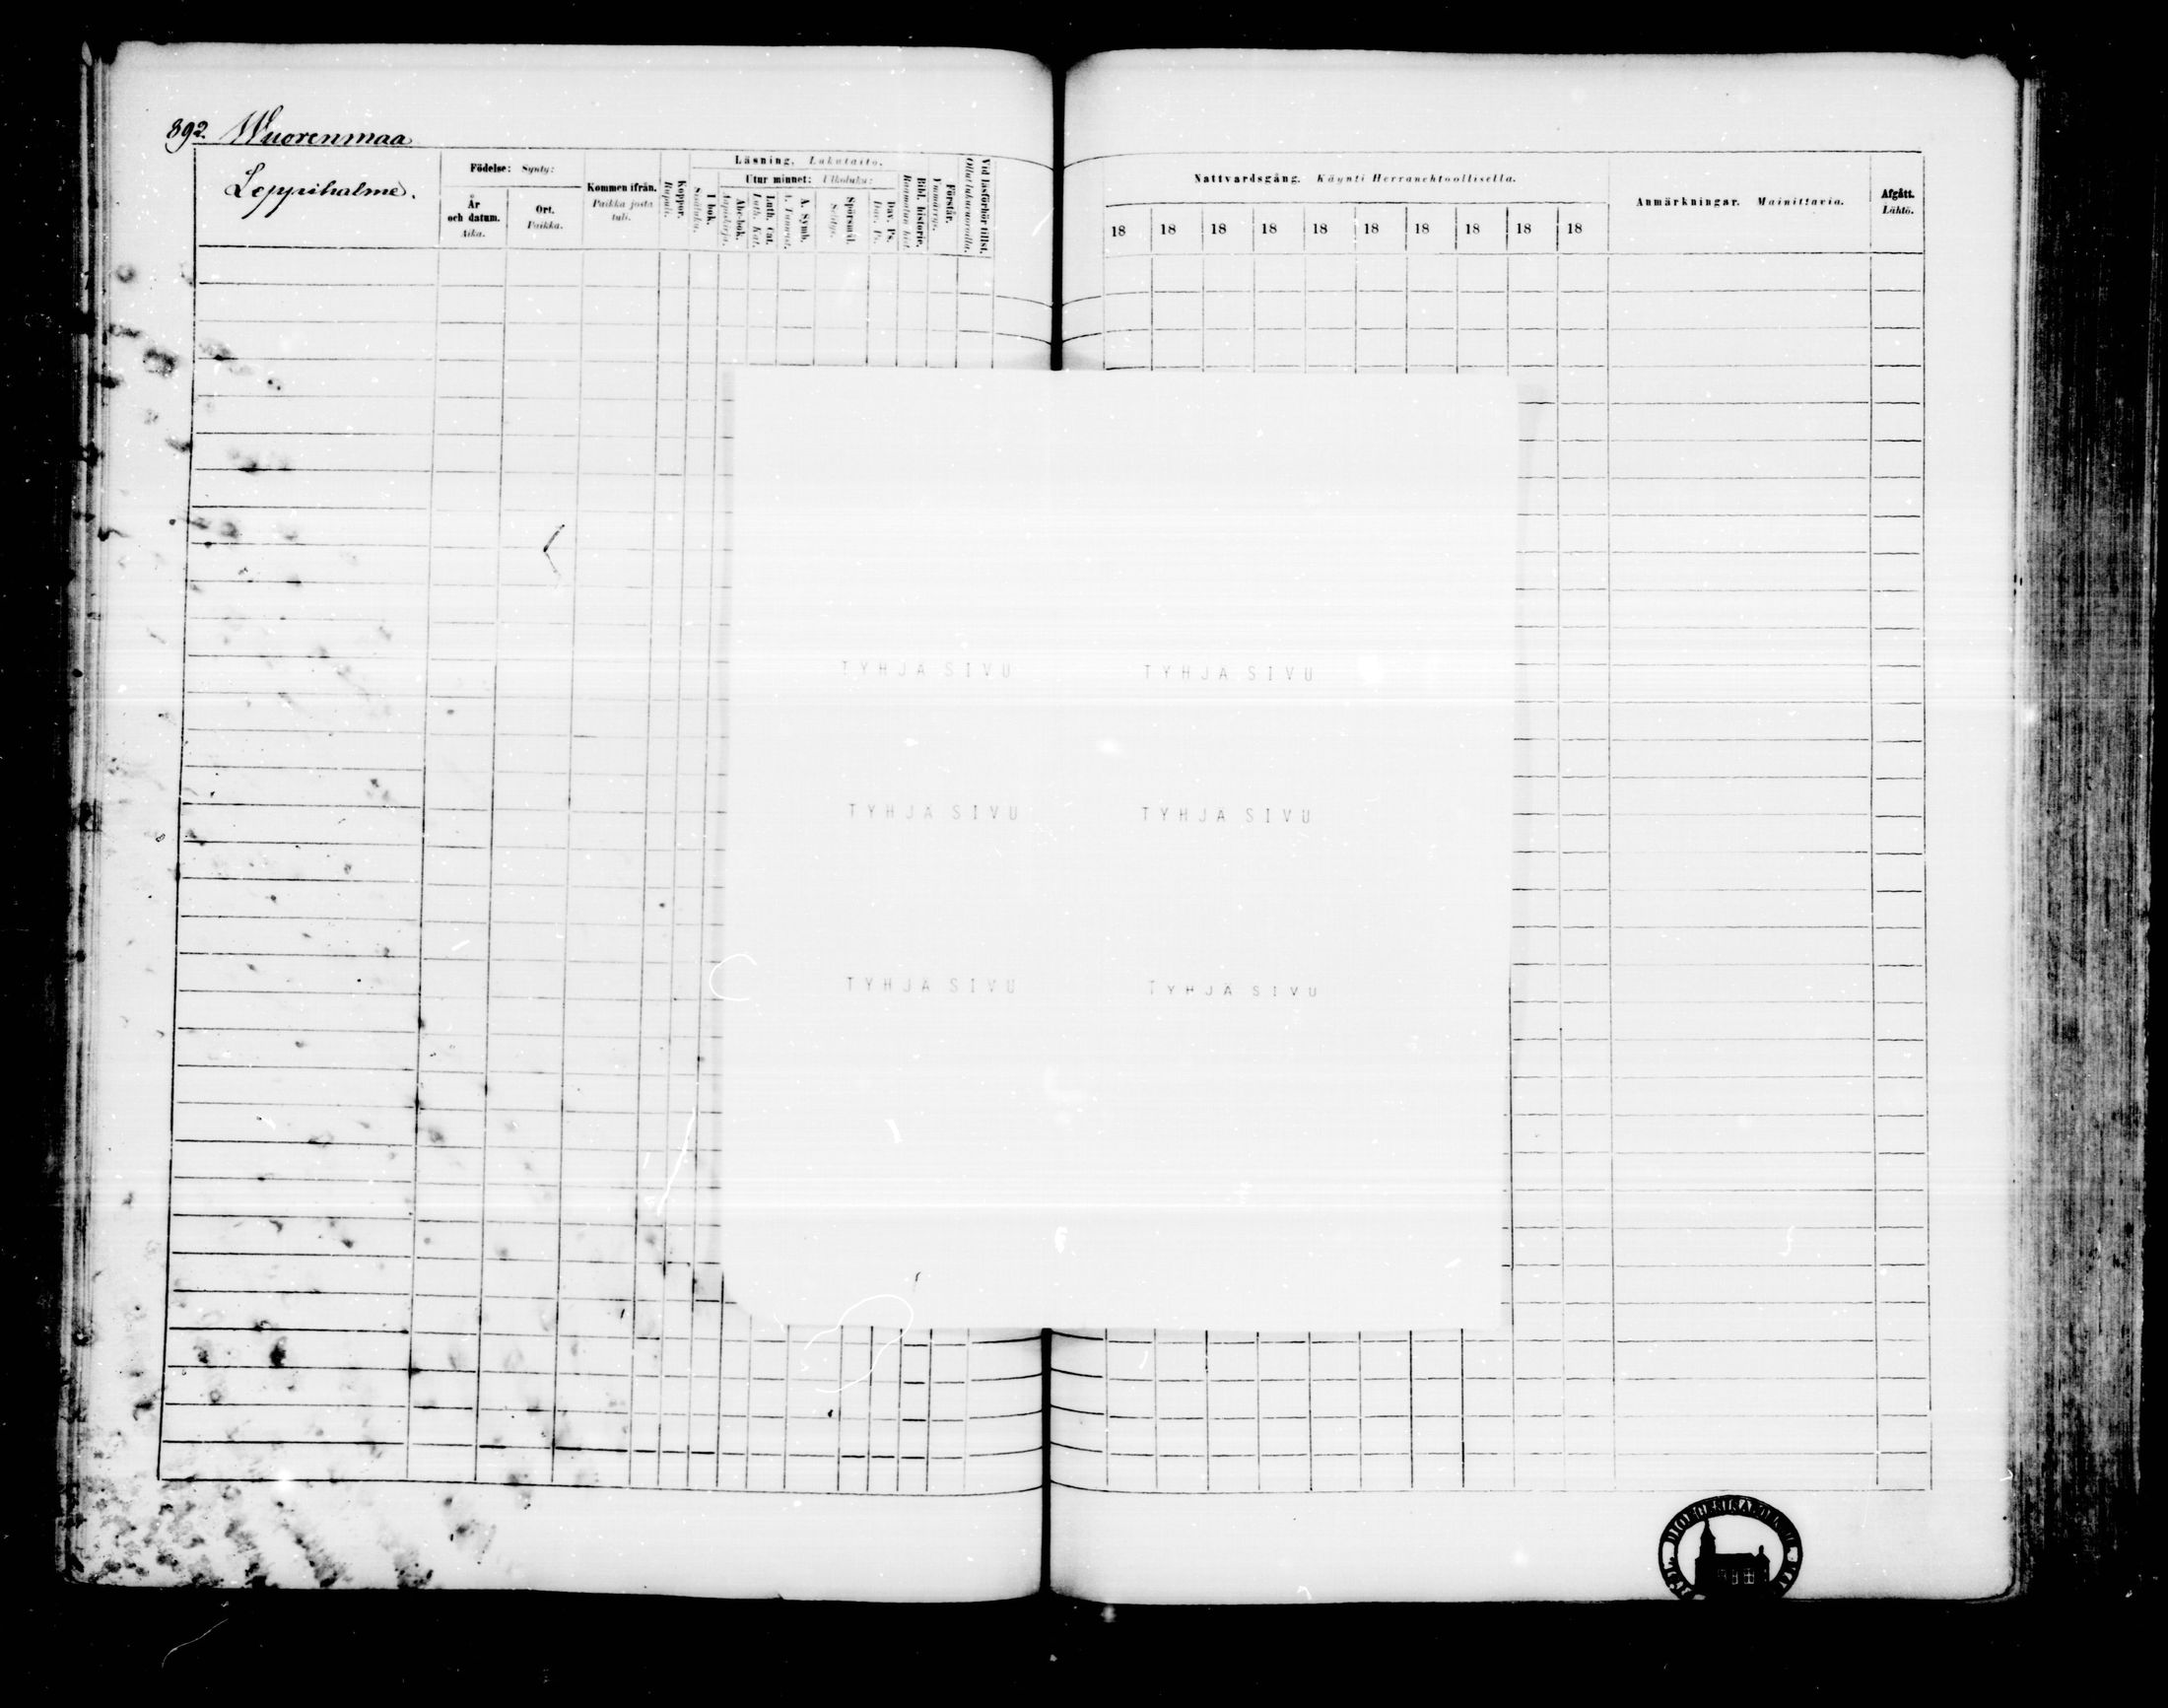 892. Wuorenmaa
Leppihalme.
Födelse: Synty:
År och datum. Aika.
Ort. Paikka.
Kommen ifrån. Paikka josta tuli.
Koppor. Rupuli.
Läsning. Lukutaito.
I bok. Sisäluku.
Utur minnet: Ulkoluku:
Abc-bok. Aapiskirja.
Luth. Cat. Luth. Kat.
A. Symb.
Spörsmål.
Dav. Ps. Dav. Ps.
Bibl. historie. Raamatun hist.
Förstår. Ymmärrys.
Vid läsförhör tillst. Ollut lukuvuorolla.
Nattvardsgång. Käynti Herranehtoollisella.
18 18 18 18 18 18 18 18 18 18
Anmärkningar. Mainittavia.
Afgått. Lähtö.
TYHJÄ SIVU TYHJÄ SIVU
TYHJÄ SIVU TYHJÄ SIVU
TYHJÄ SIVU TYHJÄ SIVU